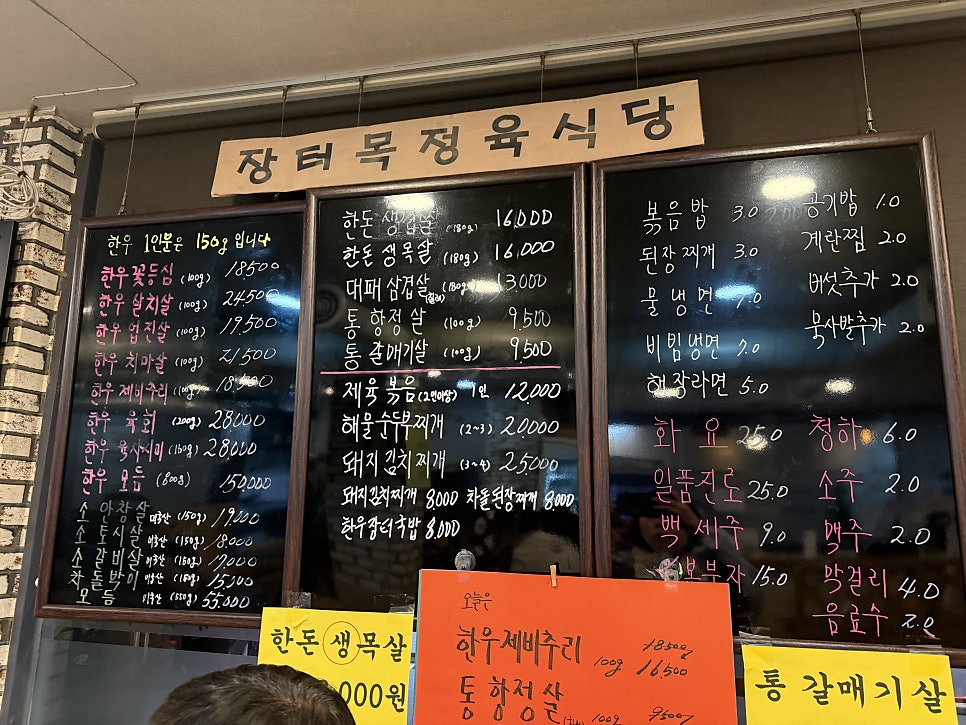 장터목정육식당
한우 1인분은 150g 입니다
한우 꽃등심 (100g) 18500
한우 살치살 (100g) 24500
한우 업진살 (100g) 19,500
한우 치마살 (100g) 21500
한우 제비추리 (100g) 18,500
한우 육회 (200g) 28000
한우 육사시미 (150g) 28,000
한우 모듬 (600g) 150,000
소 안창살 미국산 (150g) 19000
소 토시살 미국산 (150g) 18000
소 갈비살 미국산 (150g) 19000
차돌박이 미국산 (150g) 15,000
모듬 미국산 (550g) 55.000
한돈 생겹살 (180g) 16,000
한돈 생목살 (180g) 16,000
대패 삼겹살 (180g) 13,000
통 항정살 (100g) 9.500
통 갈매기살 (100g) 9,500
제육 볶음 (2인이상) 1인 12,000
해물순두부찌개 (2~3) 20,000
돼지김치찌개 (3~4) 25000
돼지김치찌개 8,000 차돌된장찌개 8,000
한우장터국밥 8,000
볶음밥 3.0
된장찌개 3.0
물냉면 7.0
비빔냉면 7.0
해장라면 5.0
공기밥 1.0
계란찜 2.0
버섯추가 2.0
묵사발추가 2.0
화요 25.0
일품진로 25.0
백세주 9.0
복부자 15.0
청하 6.0
소주 2.0
맥주 2.0
막걸리 4.0
음료수 2.0
한돈 생목살
000원
오늘은
한우제비추리 18500
100g 16,500
통항정살
100g 9500
통갈매기살